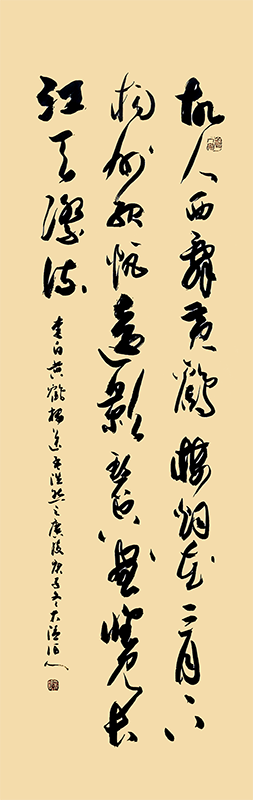 故人西辭黃鶴樓烟花三月下
揚州孤帆遠影碧空盡唯見長
江天際流
李白黃鶴樓送孟浩然之廣陵庚子冬